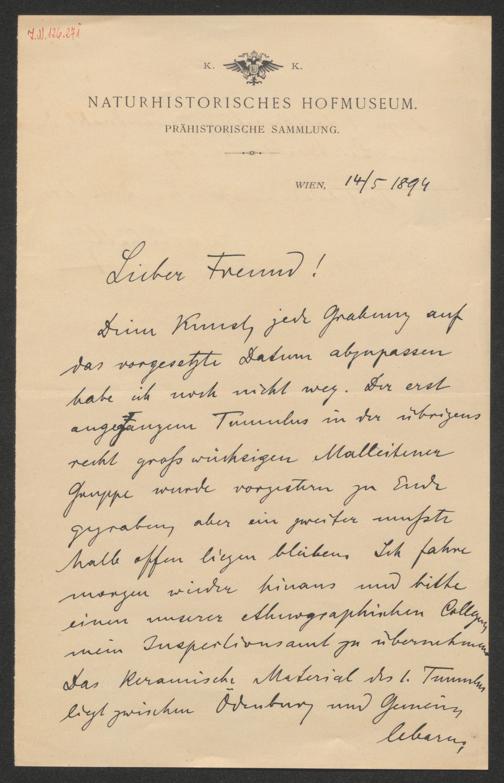 J.N. 126.271
K. K.
NATURHISTORISCHES HOFMUSEUM.
PRÄHISTORISCHE SAMMLUNG.
WIEN, 14/5 1894
Lieber Freund!
Deine Kunst, jede Grabung auf
das vorgesetzte Datum abzupassen
habe ich noch nicht weg. Der erst
angefangene Tumulus in der übrigens
recht großwüchsigen Malleitener
Gruppe wurde vorgestern zu Ende
gegraben, aber ein zweiter mußte
halb offen liegen bleiben. Ich fahre
morgen wieder hinaus und bitte
einen unserer ethnographischen Collegen,
mein Inspectionsamt zu übernehmen.
Das keramische Material des 1. Tumulus
liegt zwischen Ödenburg und Gemein-
lebarn,